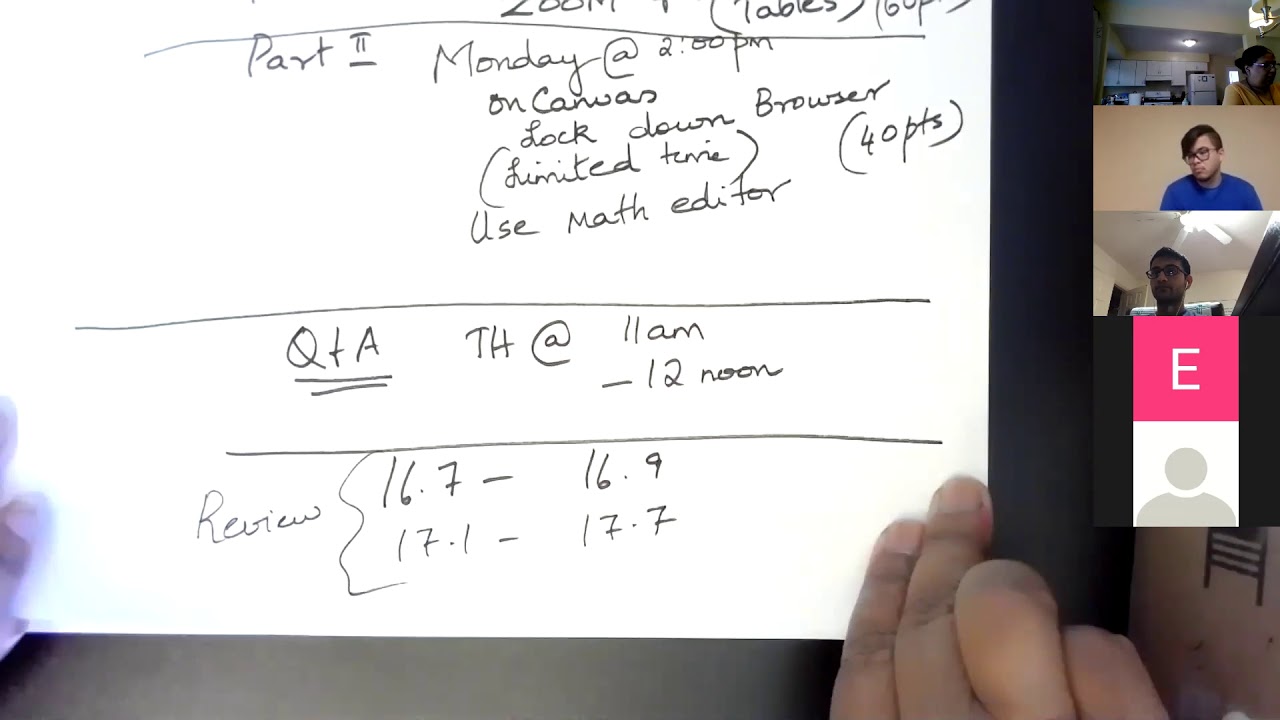 ZOOM + (Tables) (60pts)
Part II Monday @ 2:00pm
on Canvas
Lock down Browser
(Limited time) (40pts)
Use Math editor
Q+A TH @ 11am
– 12 noon
Review 16.7 – 16.9
17.1 – 17.7
E